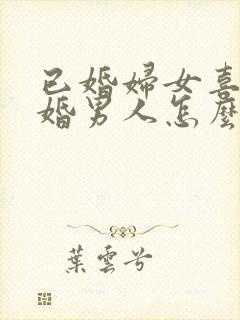 已婚婦女喜
婚男人怎麼
葉雲兮